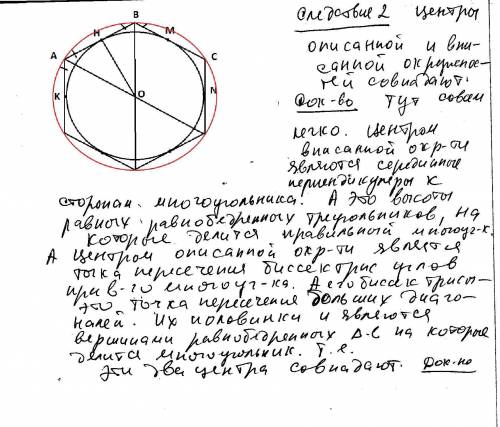 B
H
M
A
C
K
O
N
Следствие 2 Центры
описанной и впи-
санной окружнос-
тей совпадают.
Док-во Тут совсем
легко. Центром
вписанной окр-ти
являются серединные
перпендикуляры к
сторонам многоугольника. А это высоты
равных равнобедренных треугольников, на
которые делится правильный многоуг-к.
А центром описанной окр-ти является
точка пересечения биссектрис углов
прав-го многоуг-ка. А его биссектрисы-
это точка пересечения больших диаго-
налей. Их половинки и являются
вершинами равнобедренных Δ-с на которые
делится многоугольник. Т.е.
эти два центра совпадают. Док-но